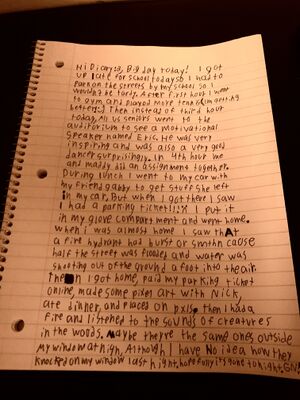 Hi Diary:), Big day today! I got
up late for school today so I had to
park on the streets by my school so I
wouldn't be tardy. After first hour I went
to gym and played more tennis (im getting
better:). Then instead of third hour
today, All us seniors went to the
auditorium to see a motivational
speaker named Eric. He was very
inspiring and was also a very good
dancer surprisingly. In 4th hour me
and maddy did an assignment together.
During lunch I went to my car with
my friend gabby to get stuff she left
in my car, But when I got there I saw
I had a parking ticket!!! I put it
in my glove compartment and went home.
when i was almost home I saw that
a fire hydrant had burst or smthn cause
half the street was flooded and water was
shooting out of the ground a foot into the air
then I got home, paid my parking ticket
online, made some pixel art with Nick,
ate dinner, and placed on pxls. Then i had a
fire and listened to the sounds of creatures
in the woods. Maybe they're the same ones outside
My window at nigh, Although I have No idea how they
knocked on my window last night, hopefully it's gone tonight, GN!